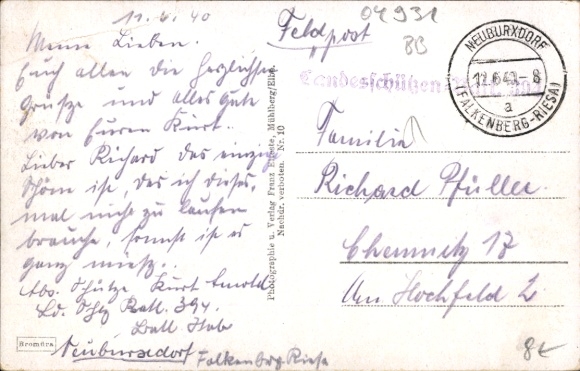 11.6.40
Meine Lieben.
Euch allen die herzlichsten
Grüsze und alles Gute
von Eurem Kurt.
Lieber Richard das einzig
Schöne ist, das ich dieses
mal nicht zu laufen
brauche, sonnst ist es
ganz
Abs. Schütze Kurt Arnold
Ld. Schtz Batl. 394.
Batl Stab
Neubursxdorf Falkenberg Riesa
Bromüra
Photographie u. Verlag Franz Mühlberg/Elbe.
Nachdr. verboten. Nr. 10
Feldpost
04931
BB
NEUBURXDORF
11.6.40.-8
a
(FALKENBERG-RIESA)
Landesschützen-
Familie
Richard Pfüller
Chemnitz 17
Am Hochfeld 2.
8€